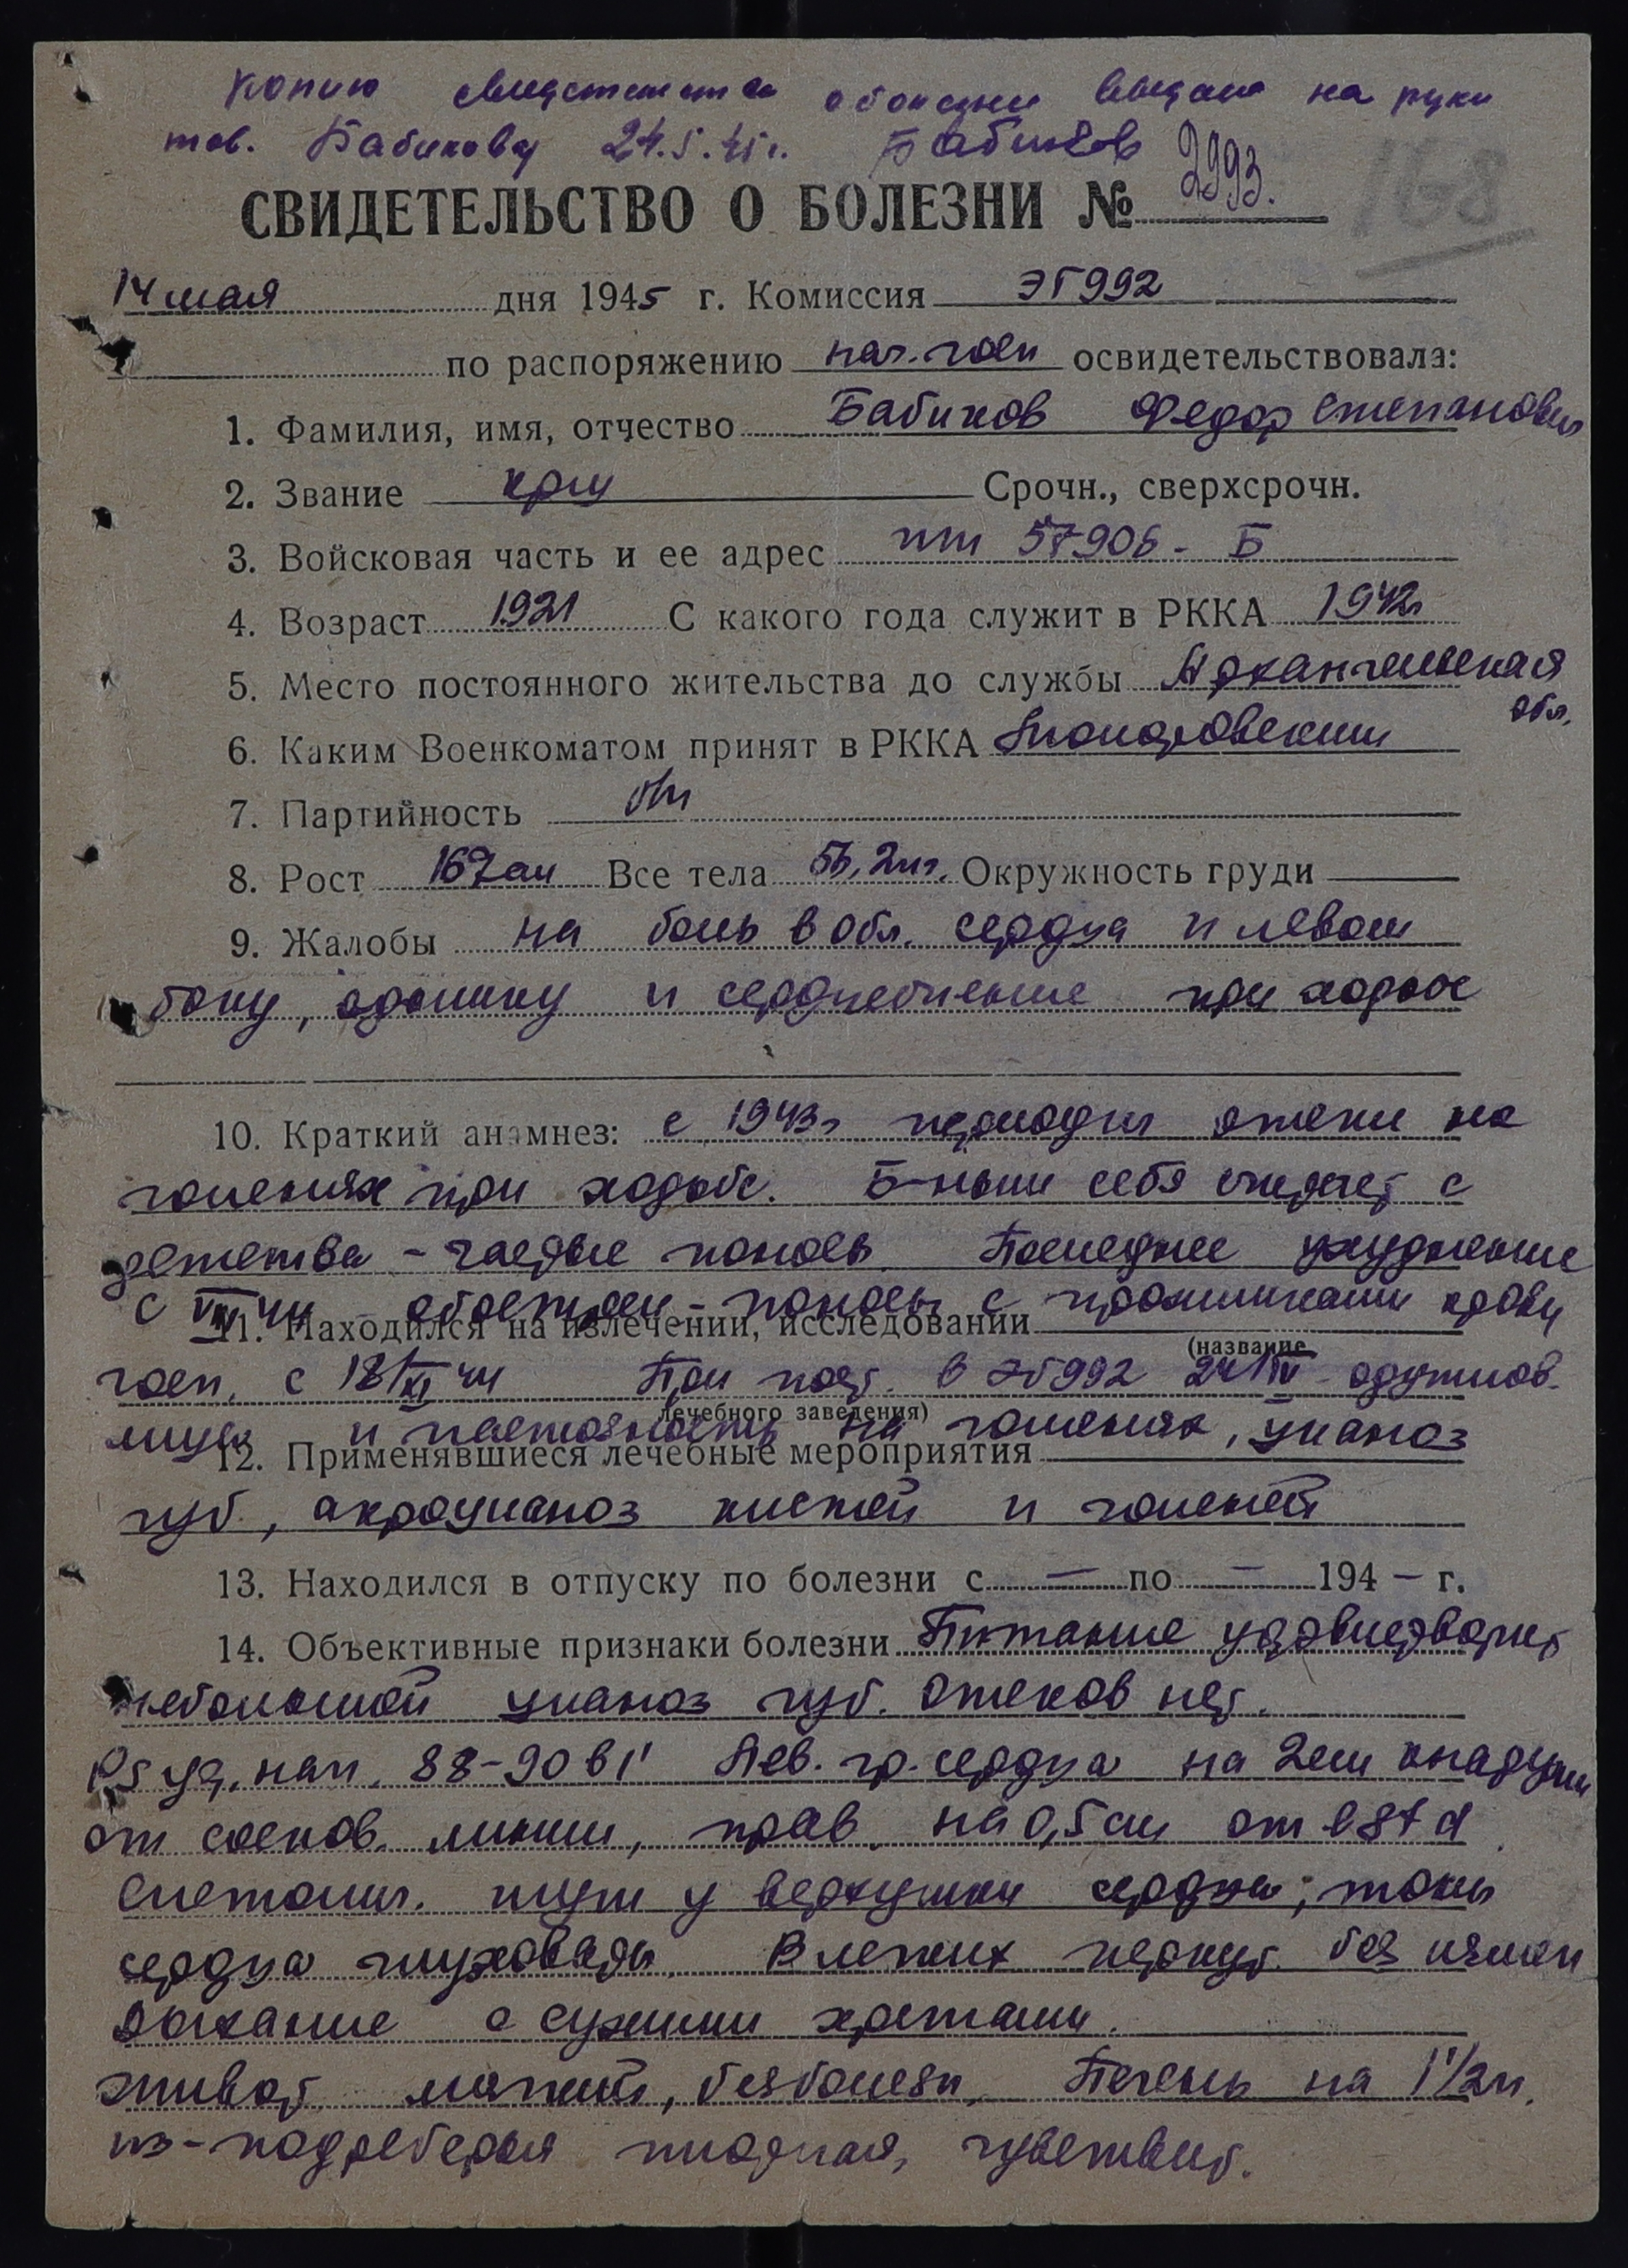 Копию свидетельства о болезни выдано на руки
тов. Бабикову 24.5.45 г. Бабиков
СВИДЕТЕЛЬСТВО О БОЛЕЗНИ № 2993.
168
14 мая дня 1945 г. Комиссия ЭГ 992
по распоряжению нач. госп освидетельствовала:
1. Фамилия, имя, отчество Бабиков Федор Степанович
2. Звание кр-ц Срочн., сверхсрочн.
3. Войсковая часть и ее адрес пп 57906 - Б
4. Возраст 1921 С какого года служит в РККА 1942г
5. Место постоянного жительства до службы Архангельская
обл.
6. Каким Военкоматом принят в РККА
7. Партийность б/п
8. Рост 167см Все тела 56,2кг. Окружность груди
9. Жалобы на боль в обл. сердца и левом
боку, одышку и сердцебиение при ходьбе
10. Краткий анамнез: с 1943г периодич отеки на
голенях при ходьбе. Б-ным себя считает с
детства - частые поносы. Последнее ухудшение
с VIII 44 - поносы с прожилками крови
11. Находился на излечении, исследовании
(название
госп. с 18/XI 44 При пост. в ЭГ992 24/IV одутлов.
лечебного заведения)
лица и пастозность на голенях, цианоз
12. Применявшиеся лечебные мероприятия
губ, акроцианоз кистей и голеней
13. Находился в отпуску по болезни с — по — 194 – г.
14. Объективные признаки болезни Питание удовлетворит
небольшой цианоз губ. Отеков нет.
Ps уд. нап. 88-90 в 1' Лев. гр. сердца на 2см кнаружи
от сосков. линии, прав. на 0,5см от l st d
Систолич. шум у верхушки сердца; тоны
сердца глуховаты. В легких перкут. без измен
дыхание с сухими хрипами.
Живот мягкий, безболезн. Печень на 1 1/2 п.
из-подреберья плотная, чувствит.